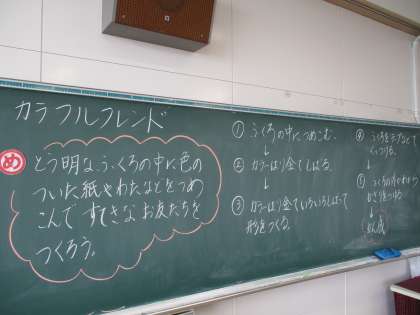 カラフルフレンド
め
とう明なふくろの中に色の
ついた紙やわたなどをつめ
こんですてきなお友だちを
つくろう。
① ふくろの中につめこむ。
↓
② カラーはり金でしばる。
↓
③ カラーはり金でいろいろしばって
形をつくる。
④ ふくろをテープなどで
くっつける。
↓
⑤
かざりをつける
↓
完成